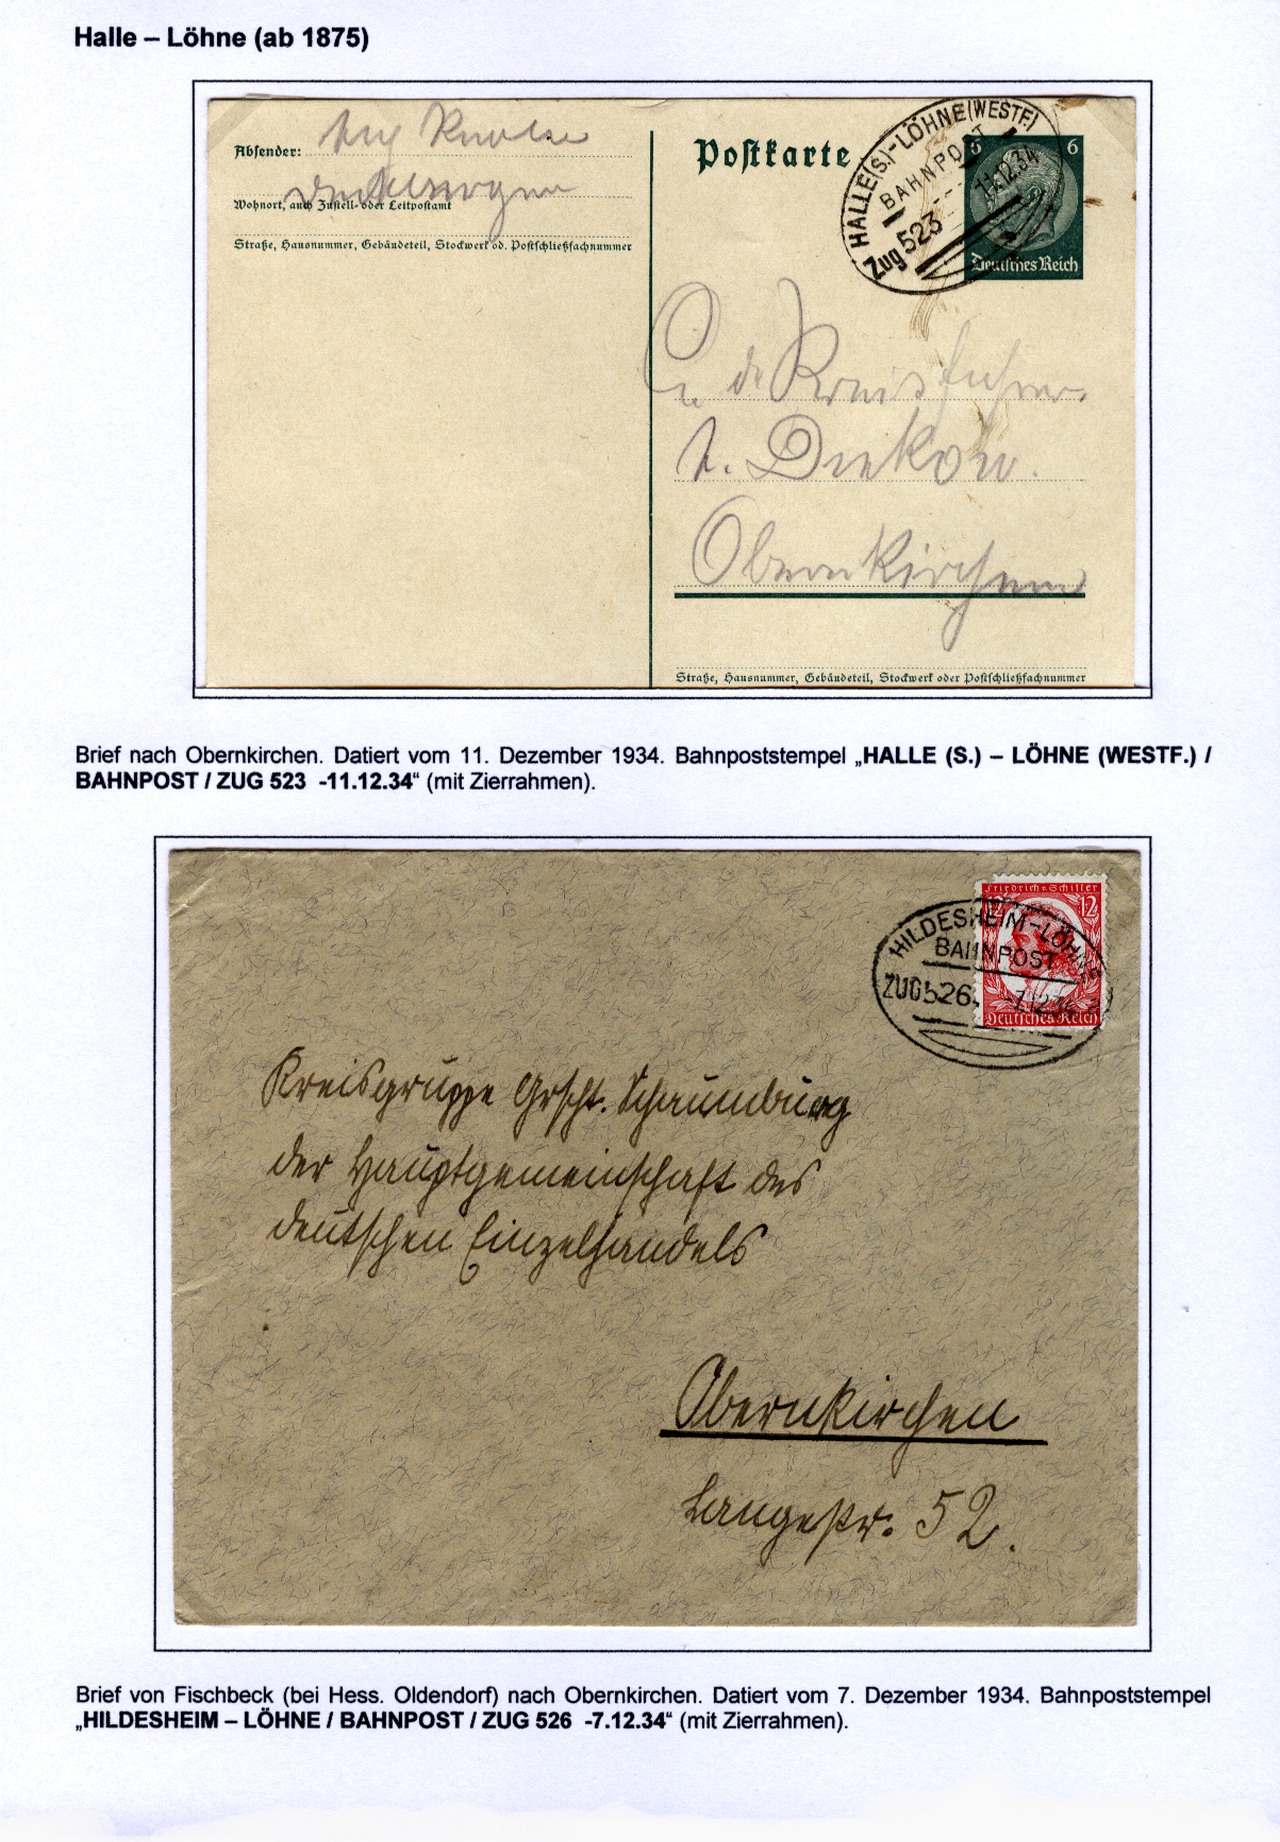 Halle – Löhne (ab 1875)
Absender:
Wohnort, auch Zustell- oder Leitpostamt
Straße, Hausnummer, Gebäudeteil, Stockwerk od. Postschließfachnummer
Postkarte
HALLE(S.)-LÖHNE(WESTF.)
BAHNPOST
-11.12.34
Zug 523
6 6
Deutsches Reich
Kreisführer
Obernkirchen
Straße, Hausnummer, Gebäudeteil, Stockwerk oder Postschließfachnummer
Brief nach Obernkirchen. Datiert vom 11. Dezember 1934. Bahnpoststempel „HALLE (S.) – LÖHNE (WESTF.) /
BAHNPOST / ZUG 523 -11.12.34“ (mit Zierrahmen).
Friedrich v. Schiller
12
HILDESHEIM-LÖHNE
BAHNPOST
ZUG 526 -7.12.34
Deutsches Reich
Kreisgruppe Grfscht. Schaumburg
der Hauptgemeinschaft des
deutschen Einzelhandels
Obernkirchen
Langestr. 52.
Brief von Fischbeck (bei Hess. Oldendorf) nach Obernkirchen. Datiert vom 7. Dezember 1934. Bahnpoststempel
„HILDESHEIM – LÖHNE / BAHNPOST / ZUG 526 -7.12.34“ (mit Zierrahmen).